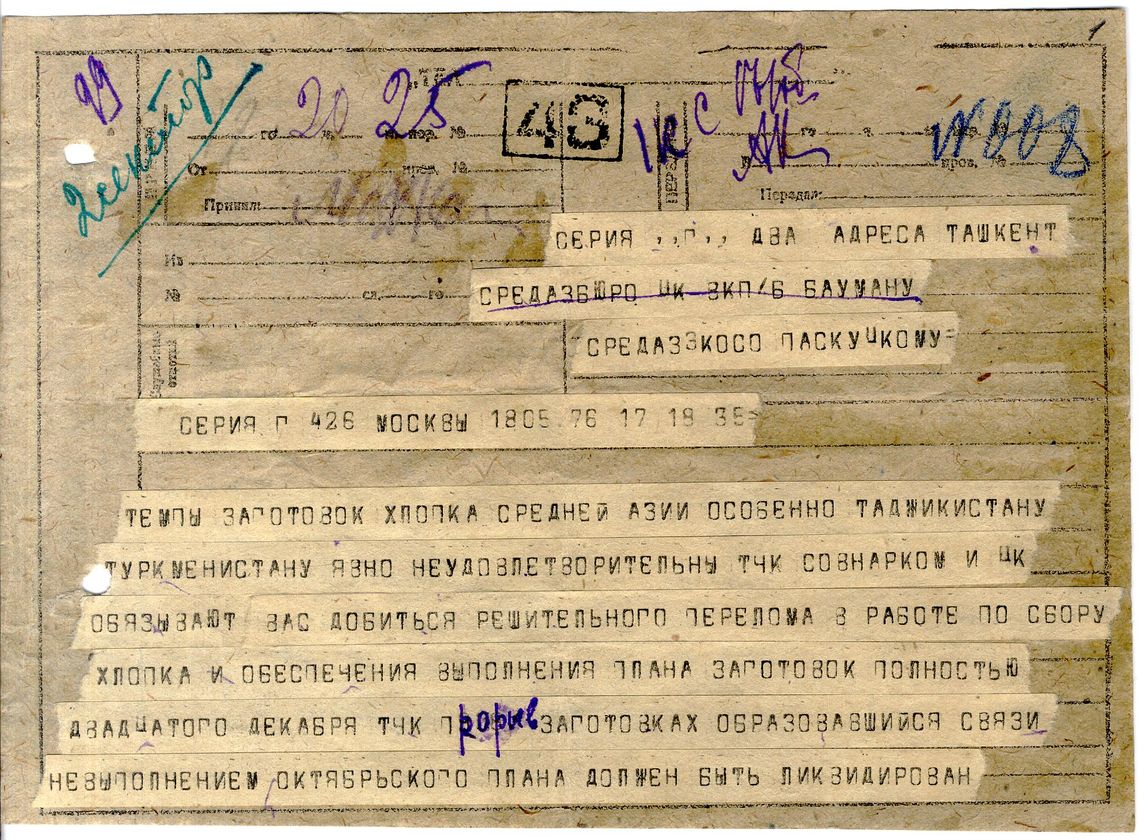 1
99
2 сектор
20
25
48
№ 008
пор. №
От
пров. №
Принял:
Передал:
Из
№
сл.
го
Служебные отметки
СЕРИЯ ,,Г,, ДВА АДРЕСА ТАШКЕНТ
СРЕДАЗБЮРО ЦК ВКП/Б БАУМАНУ
СРЕДАЗЭКОСО ПАСКУЦКОМУ=
СЕРИЯ Г 426 МОСКВЫ 1805 76 17 18 35=
ТЕМПЫ ЗАГОТОВОК ХЛОПКА СРЕДНЕЙ АЗИИ ОСОБЕННО ТАДЖИКИСТАНУ
ТУРКМЕНИСТАНУ ЯВНО НЕУДОВЛЕТВОРИТЕЛЬНЫ ТЧК СОВНАРКОМ И ЦК
ОБЯЗЫВАЮТ ВАС ДОБИТЬСЯ РЕШИТЕЛЬНОГО ПЕРЕЛОМА В РАБОТЕ ПО СБОРУ
ХЛОПКА И ОБЕСПЕЧЕНИЯ ВЫПОЛНЕНИЯ ПЛАНА ЗАГОТОВОК ПОЛНОСТЬЮ
ДВАДЦАТОГО ДЕКАБРЯ ТЧК ПРОРЫВ ЗАГОТОВКАХ ОБРАЗОВАВШИЙСЯ СВЯЗИ
НЕВЫПОЛНЕНИЕМ ОКТЯБРЬСКОГО ПЛАНА ДОЛЖЕН БЫТЬ ЛИКВИДИРОВАН